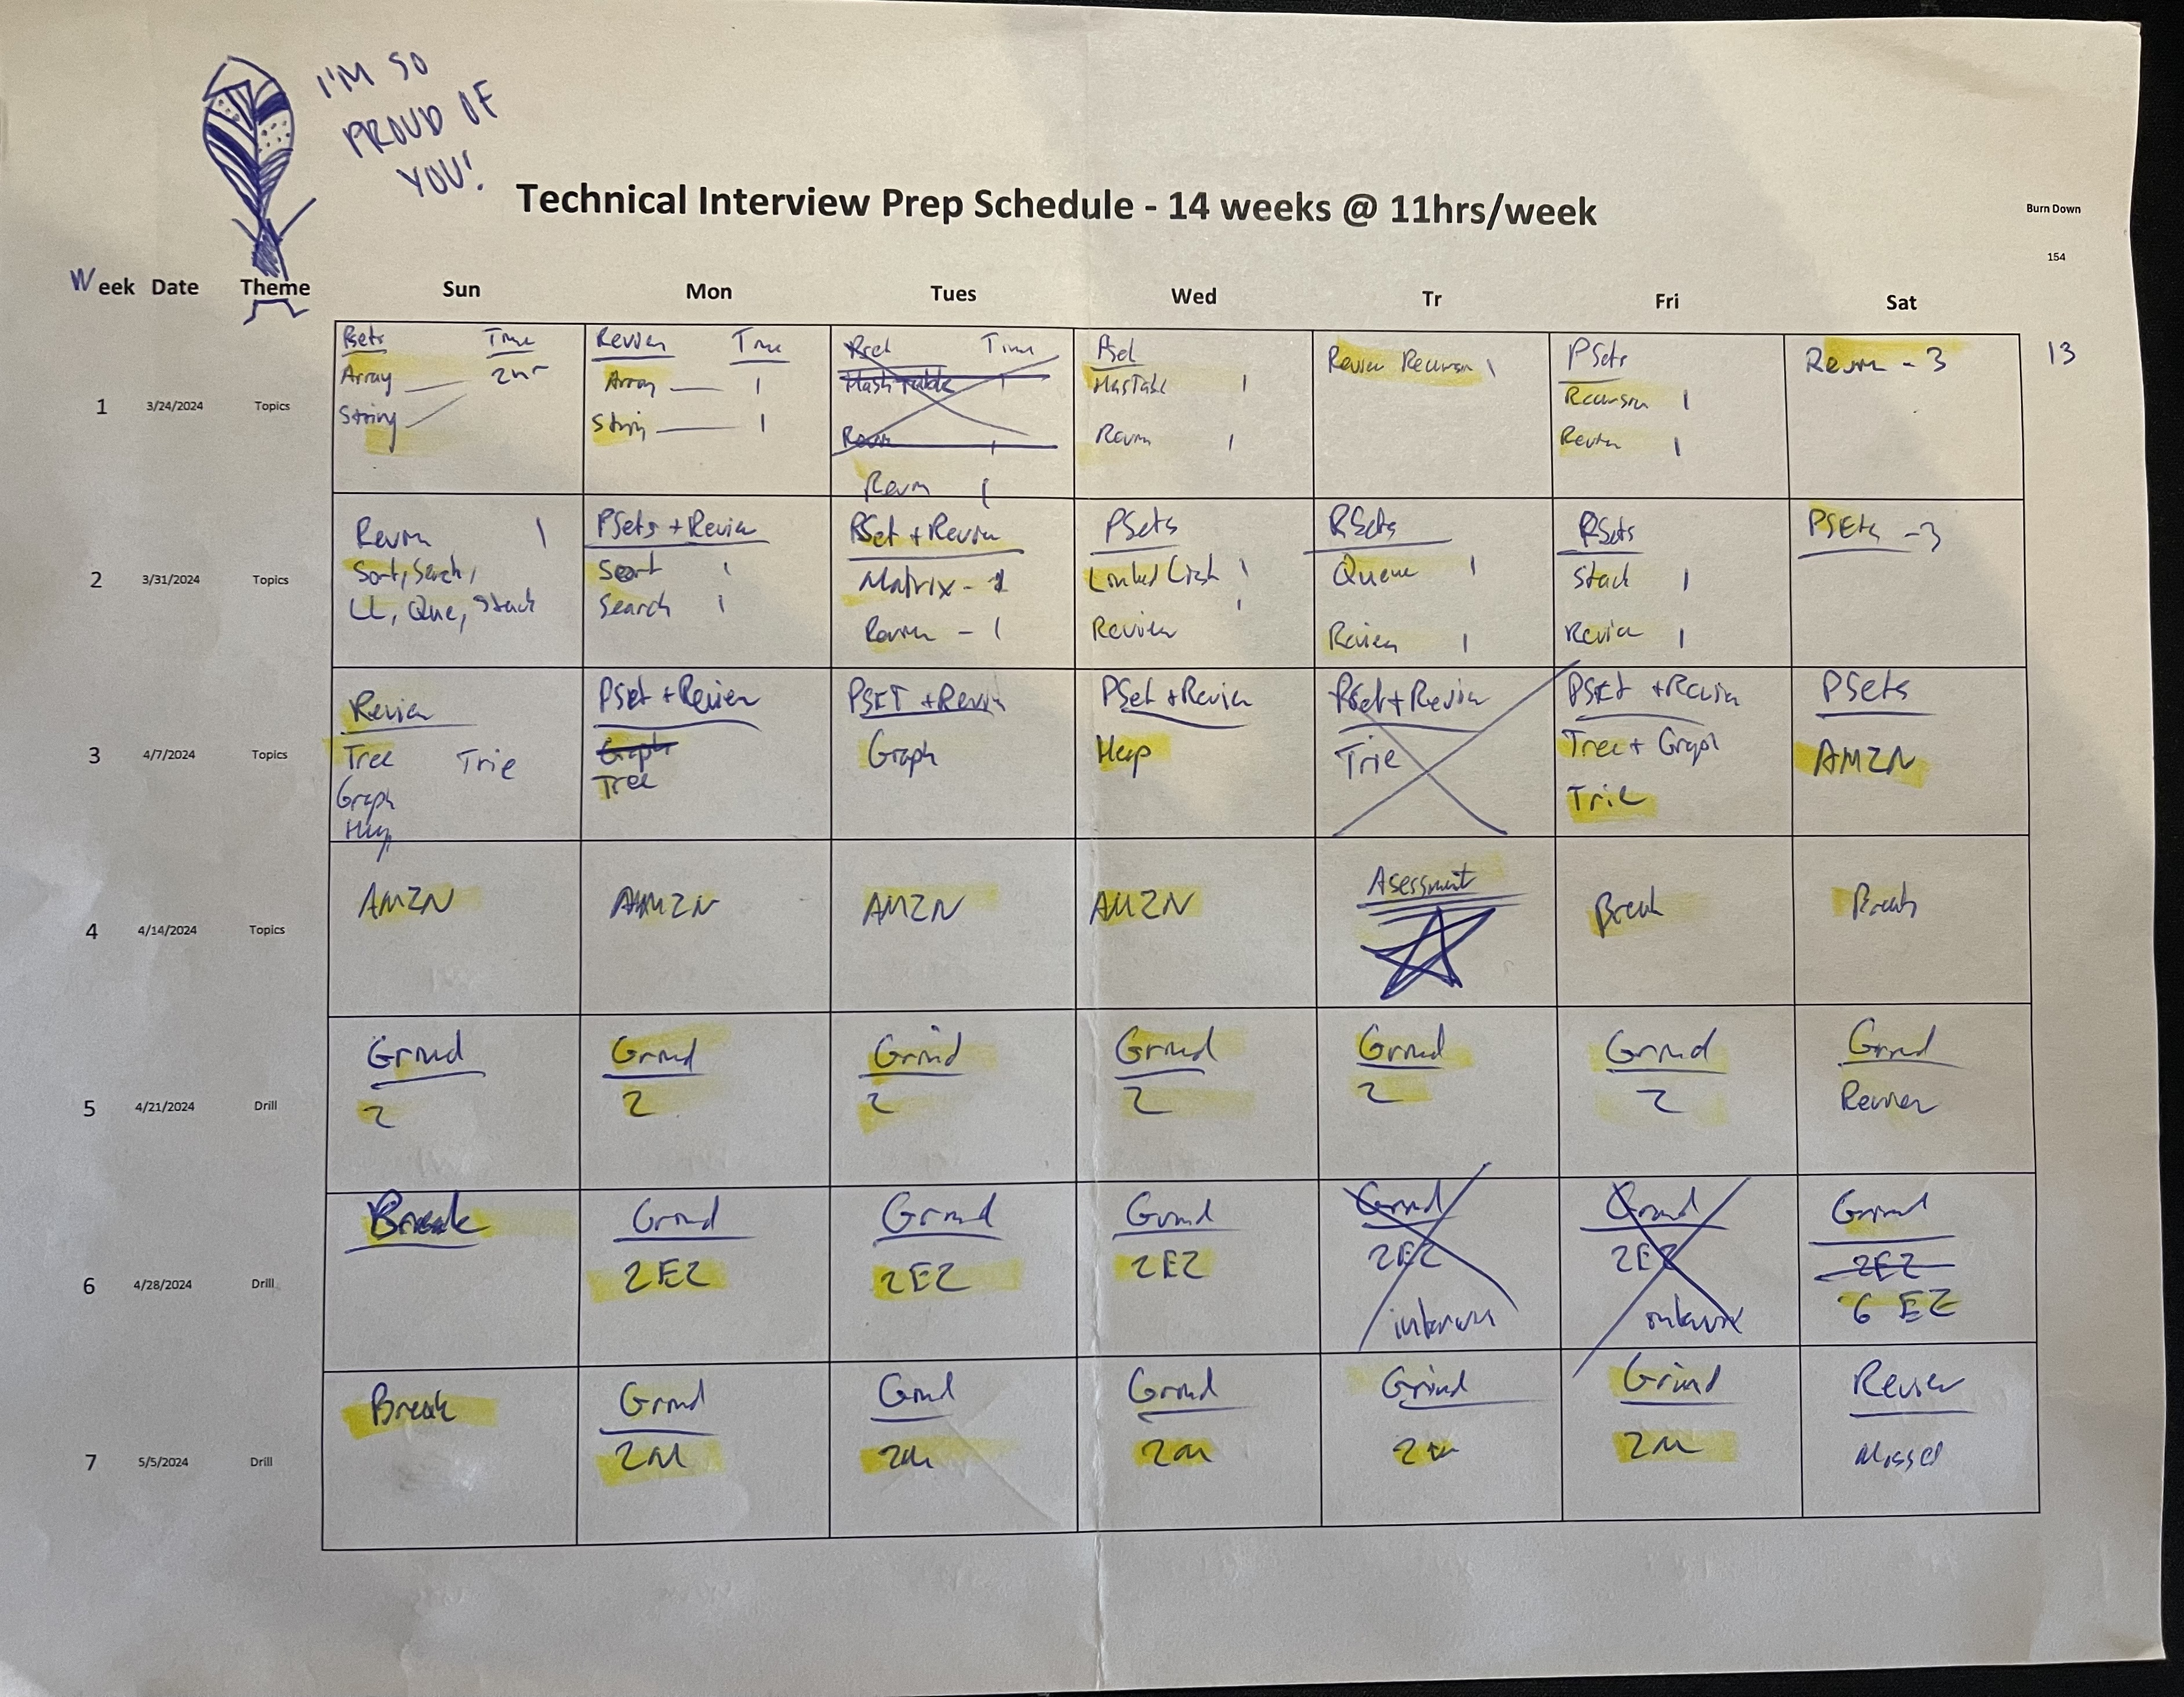 I'M SO
PROUD OF
YOU!
Technical Interview Prep Schedule - 14 weeks @ 11hrs/week
Burn Down
154
Week Date Theme Sun Mon Tues Wed Tr Fri Sat
1 3/24/2024 Topics
Psets Time
Array 2hr
String
Review Time
Array 1
String 1
Pset Time
Hash table 1
Revm 1
Revm 1
Pset
HasTable 1
Revm 1
Review Recursn 1
PSets
Recursn 1
Review 1
Revm - 3
13
2 3/31/2024 Topics
Revm 1
Sort, Serch,
LL, Que, Stack
PSets + Review
Sort 1
Search 1
PSet + Review
Matrix - 1
Review - 1
PSets
Linked List 1
Review 1
PSets
Queue 1
Review 1
PSets
Stack 1
Review 1
PSEts - 3
3 4/7/2024 Topics
Review
Tree Trie
Graph
Heap
PSet + Review
Graph
Tree
PSET + Review
Graph
PSet + Review
Heap
PSet + Review
Trie
PSEt + Review
Tree + Graph
Trie
PSets
AMZN
4 4/14/2024 Topics
AMZN
AMZN
AMZN
AMZN
Asessment
Break
Break
5 4/21/2024 Drill
Grind
2
Grind
2
Grind
2
Grind
2
Grind
2
Grind
2
Grind
Review
6 4/28/2024 Drill
Break
Grind
2EZ
Grind
2EZ
Grind
2EZ
Grind
2EZ
interview
Grind
2EZ
interview
Grind
2EZ
6 EZ
7 5/5/2024 Drill
Break
Grind
2M
Grind
2M
Grind
2M
Grind
2M
Grind
2M
Review
Missed